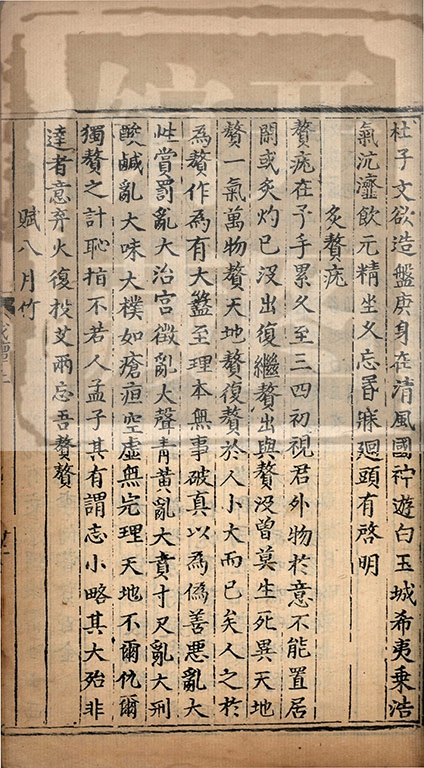 杜子文欲造盤庚身在清風國神遊白玉城希夷秉浩
氣沆瀣飲元精坐久忘昏寐廻頭有啓明
炙贅疣
贅疣在予手累久至三四初視君外物於意不能置居
閒或炙灼已没出復繼贅出與贅没曾莫生死異天地
贅一氣萬物贅天地贅復贅於人小大而已矣人之於
為贅作為有大盭至理本無事破真以為偽善惡亂大
性賞罰亂大治宫徵亂大聲青黄亂大賁寸尺亂大刑
酸鹹亂大味大樸如瘡疸空虚無完理天地不爾仇爾
獨贅之計恥指不若人孟子其有謂志小略其大殆非
達者意弃火復投艾兩忘吾贅贅
賦八月竹